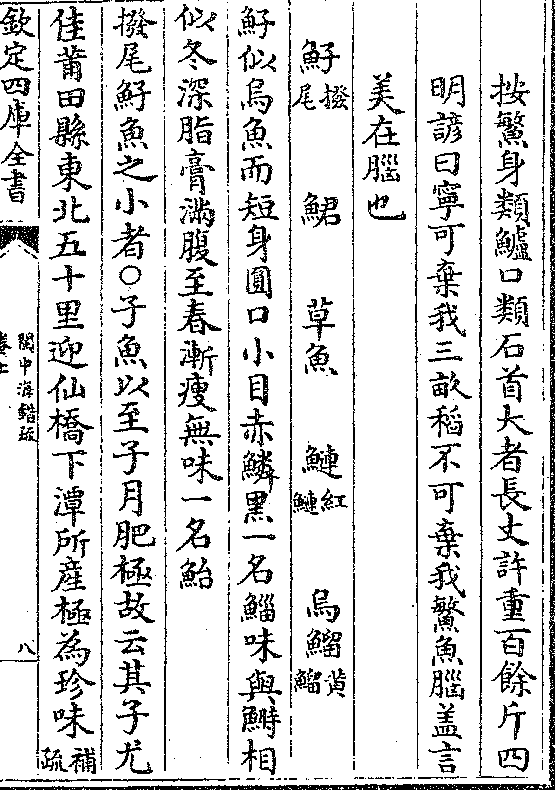 按鰵身類鱸口類石首大者長丈許重一百餘斤四
明諺曰寧可棄我三畝稻不可棄我鰵魚腦盖言
美在腦也
魣撥尾 鮶 草魚 鰱紅鰱 烏鰡黄鰡
魣似烏魚而短身圓口小目赤鱗黑一名鯔味與鰣相
似冬深脂膏滿腹至春漸瘦無味一名鮐
撥尾魣魚之小者○子魚以至子月肥極故云其子尤
佳莆田縣東北五十里迎仙橋下潭所産極為珍味補疏
欽定四庫全書
閩中海錯疏
八